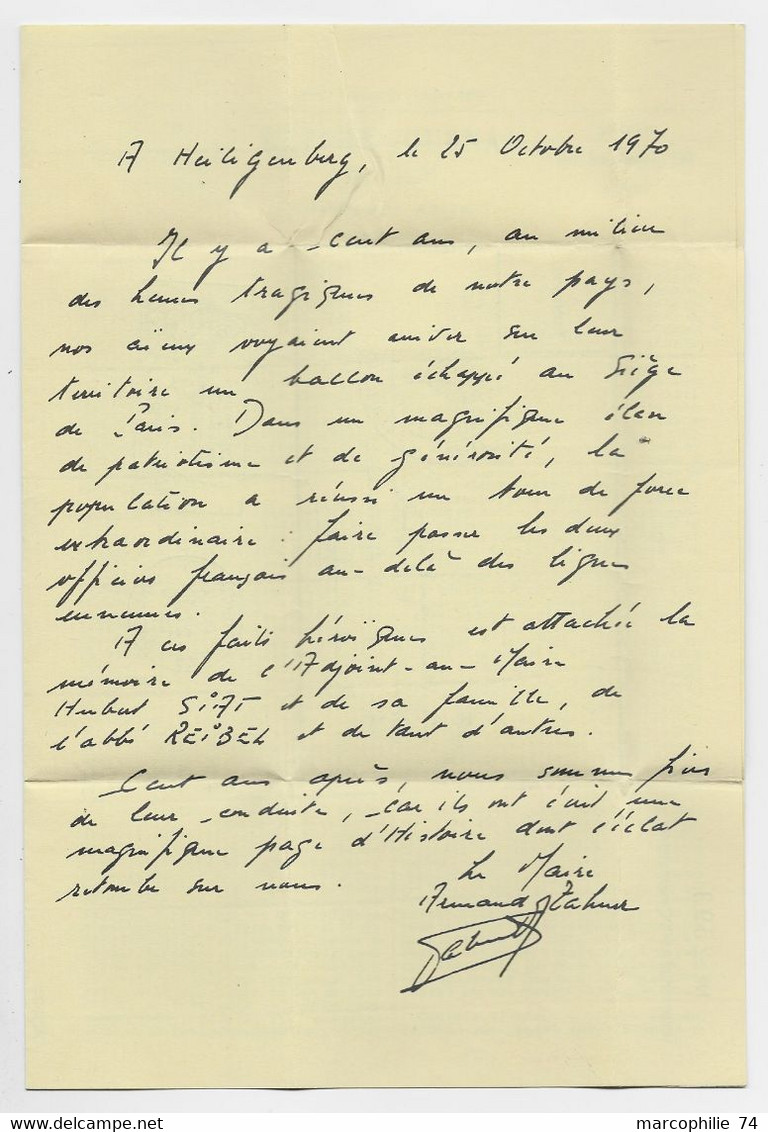 A Heiligenberg, le 25 Octobre 1970
Il y a cent ans, au milieu
des heures tragiques de notre pays,
nos aïeux voyaient arriver sur leur
territoire un ballon échappé au Siège
de Paris. Dans un magnifique élan
de patriotisme et de générosité, la
population a réussi un tour de force
extraordinaire : faire passer les deux
officiers français au-delà des lignes
ennemies.
A ces faits héroïques est attachée la
mémoire de l'Adjoint-au-Maire
Hubert SiAT et de sa famille, de
l'abbé REiBEL et de tant d'autres.
Cent ans après, nous sommes fiers
de leur conduite, car ils ont écrit une
magnifique page d'Histoire dont l'éclat
retombe sur nous.
Le Maire
Armand
marcophilie 74